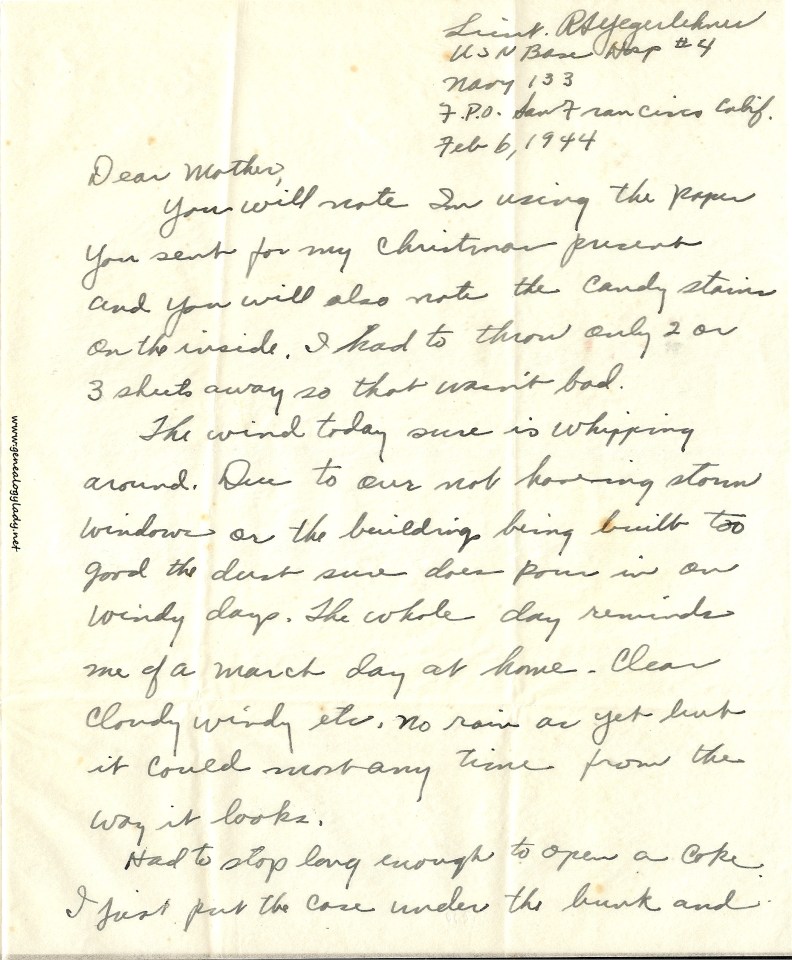 Lieut. RHYegerlehner
USN Base Hosp #4
Navy 133
F.P.O. San Francisco Calif.
Feb 6, 1944
Dear Mother,
You will note Im using the paper
you sent for my Christmas present
and you will also note the candy stains
on the inside. I had to throw only 2 or
3 sheets away so that wasn't bad.
The wind today sure is whipping
around. Due to our not having storm
windows or the buildings being built too
good the dust sure does pour in on
windy days. The whole day reminds
me of a march day at home. Clear
Cloudy windy etc. No rain as yet but
it could most any time from the
way it looks.
Had to stop long enough to open a Coke.
I just put the case under the bunk and
www.genealogylady.net